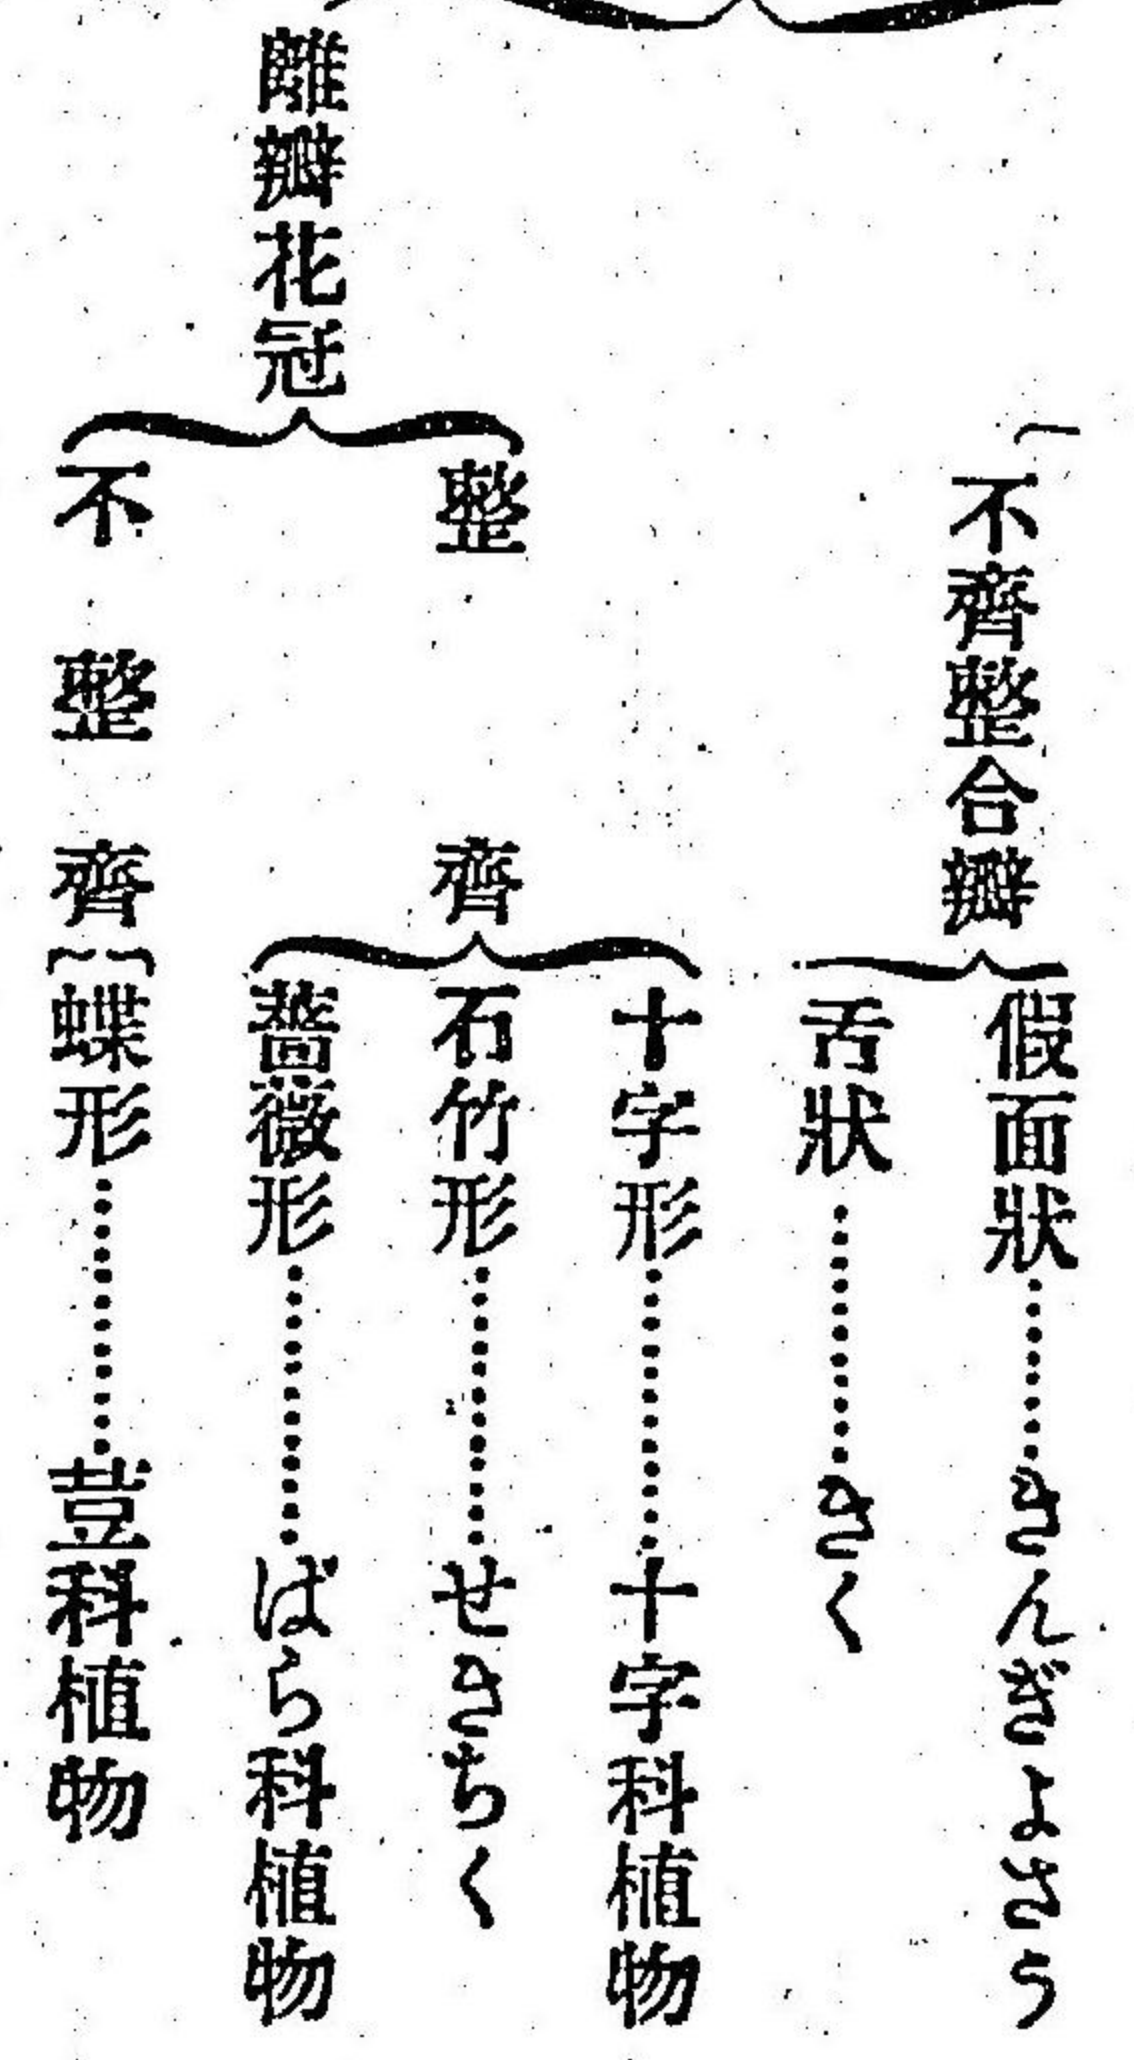 不齊整合瓣
假面狀………きんぎよさう
舌狀………きく
離瓣花冠
整齊
十字形………十字科植物
石竹形………せきちく
薔薇形………ばら科植物
不整齊
蝶形………荳科植物